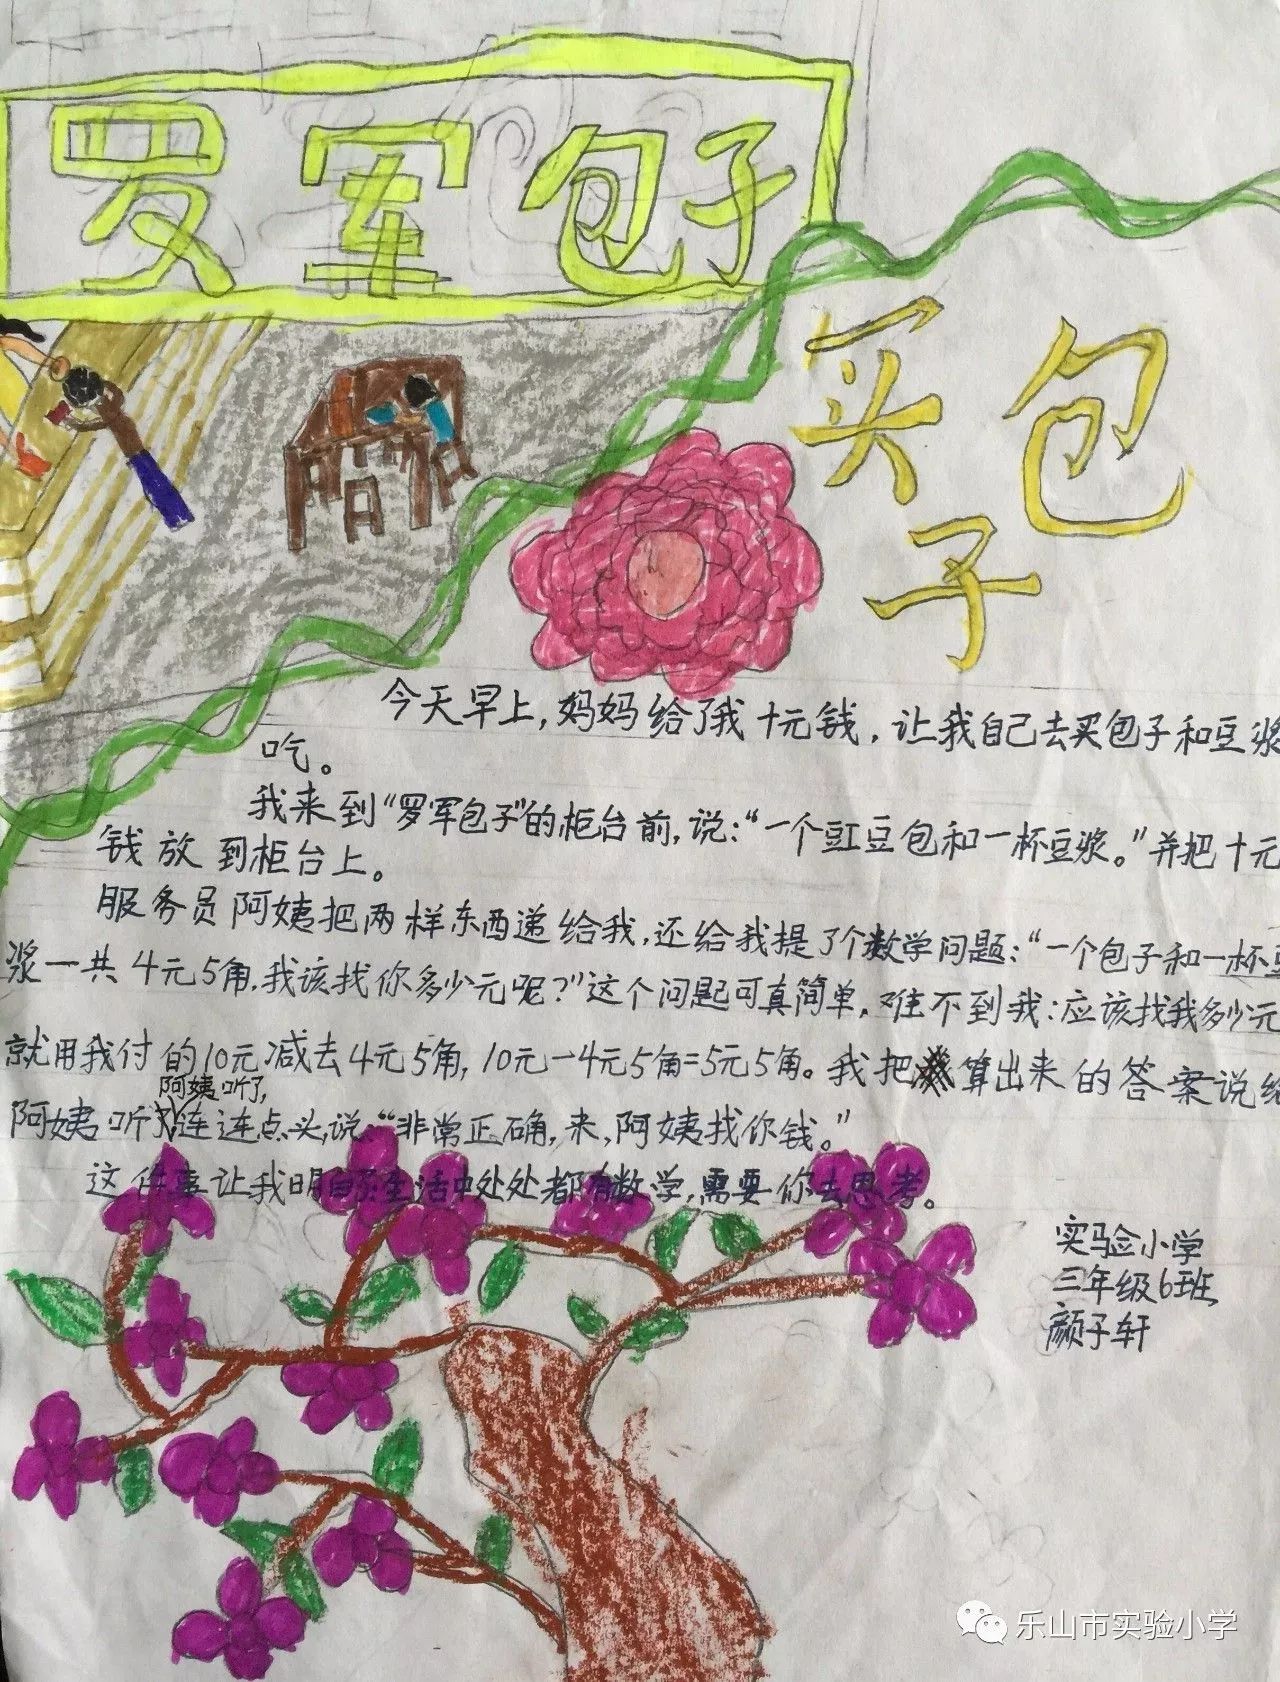 罗军包子
买包
子
今天早上，妈妈给了我十元钱，让我自己去买包子和豆浆
吃。
我来到“罗军包子”的柜台前，说：“一个豇豆包和一杯豆浆。”并把十元
钱放到柜台上。
服务员阿姨把两样东西递给我，还给我提了个数学问题：“一个包子和一杯豆
浆一共4元5角，我该找你多少元呢？”这个问题可真简单，难不到我：应该找我多少元
就用我付的10元减去4元5角，10元－4元5角=5元5角。我把算出来的答案说给
阿姨听了，
阿姨听，连连点头，说：“非常正确，来，阿姨找你钱。”
这件事让我明白了生活中处处都有数学，需要你去思考。
实验小学
三年级6班
颜子轩
乐山市实验小学